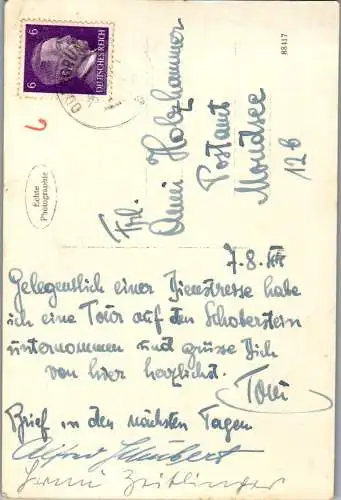 6
6
DEUTSCHES REICH
6
Echte
Photographie
88417
Frl.
Anni Holzhammer
Postamt
Mondsee
12b
7.8.
Gelegentlich einer Dienstreise habe
ich eine Tour auf den Schoberstein
unternommen und grüsse Dich
von hier herzlichst.
Toni
Brief in den nächsten Tagen
Alfred Schubert
Zeitlinger